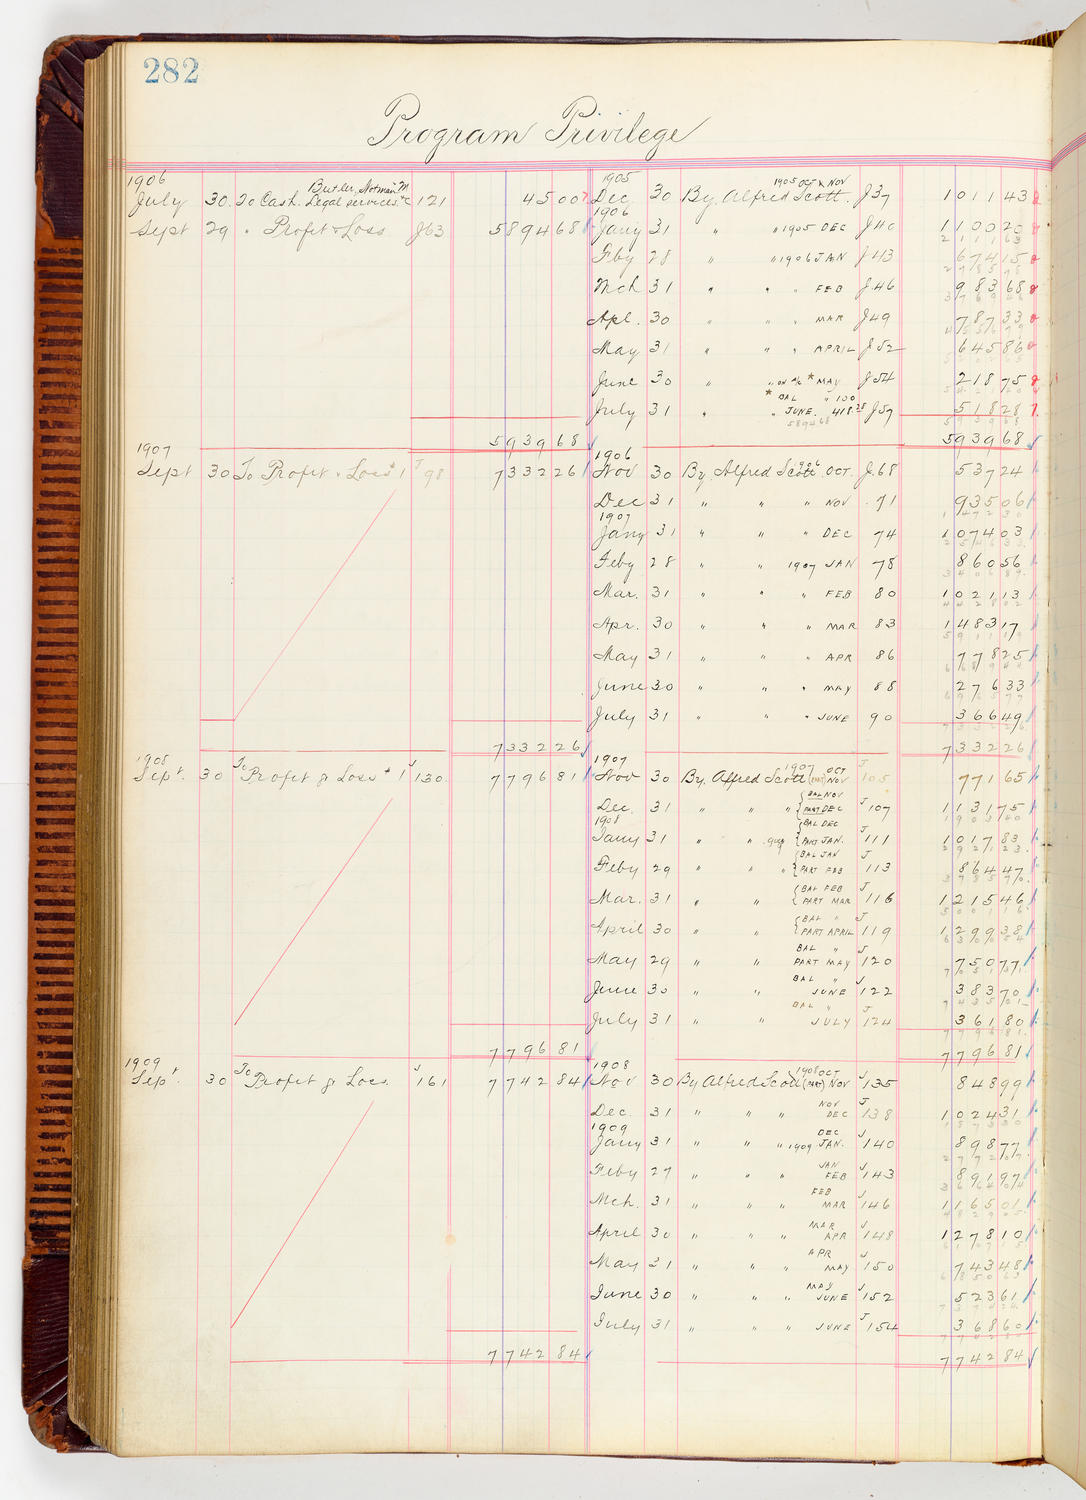 282
Program Privilege
1906
July 30 To Cash. Butler, Notman, M Legal services &c 121 45 00
Sept 29 " Profit & Loss J63 5894 68
5939 68
1907
Sept 30 To Profit & Loss J 98 7332 26
7332 26
1908
Sept. 30 To Profit & Loss J 130 7796 81
7796 81
1909
Sept. 30 To Profit & Loss J 161 7742 84
7742 84
1905
Dec 30 By Alfred Scott. 1905 OCT & NOV J37 1011 43
1906
Jany 31 " " 1905 DEC J40 1100 20
Feby 28 " " 1906 JAN J43 674 15
Mch 31 " " " FEB J46 983 68
Apl. 30 " " " MAR J49 787 33
May 31 " " " APRIL J52 645 86
June 30 " " ON A/C * MAY J54 218 75
* BAL " 100
July 31 " " JUNE. 418.28 J57 518 28
5894 68
5939 68
1906
Nov 30 By Alfred Scott 1906 OCT. J68 537 24
Dec 31 " " " NOV 71 935 06
1907
Jany 31 " " " DEC 74 1074 03
Feby 28 " " 1907 JAN 78 860 56
Mar. 31 " " " FEB 80 1021 13
Apr. 30 " " " MAR 83 1483 17
May 31 " " " APR 86 778 25
June 30 " " " MAY 88 276 33
July 31 " " " JUNE 90 366 49
7332 26
1907
Nov 30 By Alfred Scott 1907 OCT (PART) NOV J 105 771 65
Dec. 31 " " " BAL NOV PART DEC J 107 1131 75
1908
Jany 31 " " " 1908 BAL DEC PART JAN. J 111 1017 83
Feby 29 " " " BAL JAN PART FEB J 113 864 47
Mar. 31 " " BAL FEB PART MAR J 116 1215 46
April 30 " " BAL " PART APRIL J 119 1299 38
May 29 " " BAL " PART MAY J 120 750 77
June 30 " " BAL " JUNE J 122 383 70
July 31 " " BAL " JULY J 124 361 80
7796 81
1908
Nov 30 By Alfred Scott 1908 OCT (PART) NOV J 135 848 99
Dec. 31 " " " NOV DEC J 138 1024 31
1909
Jany 31 " " " 1909 DEC JAN. J 140 898 77
Feby 27 " " " JAN FEB J 143 891 97
Mch. 31 " " " FEB MAR J 146 1165 01
April 30 " " " MAR APR J 148 1278 10
May 31 " " " APR MAY J 150 743 48
June 30 " " " MAY JUNE J 152 523 61
July 31 " " " JUNE J 154 368 60
7742 84